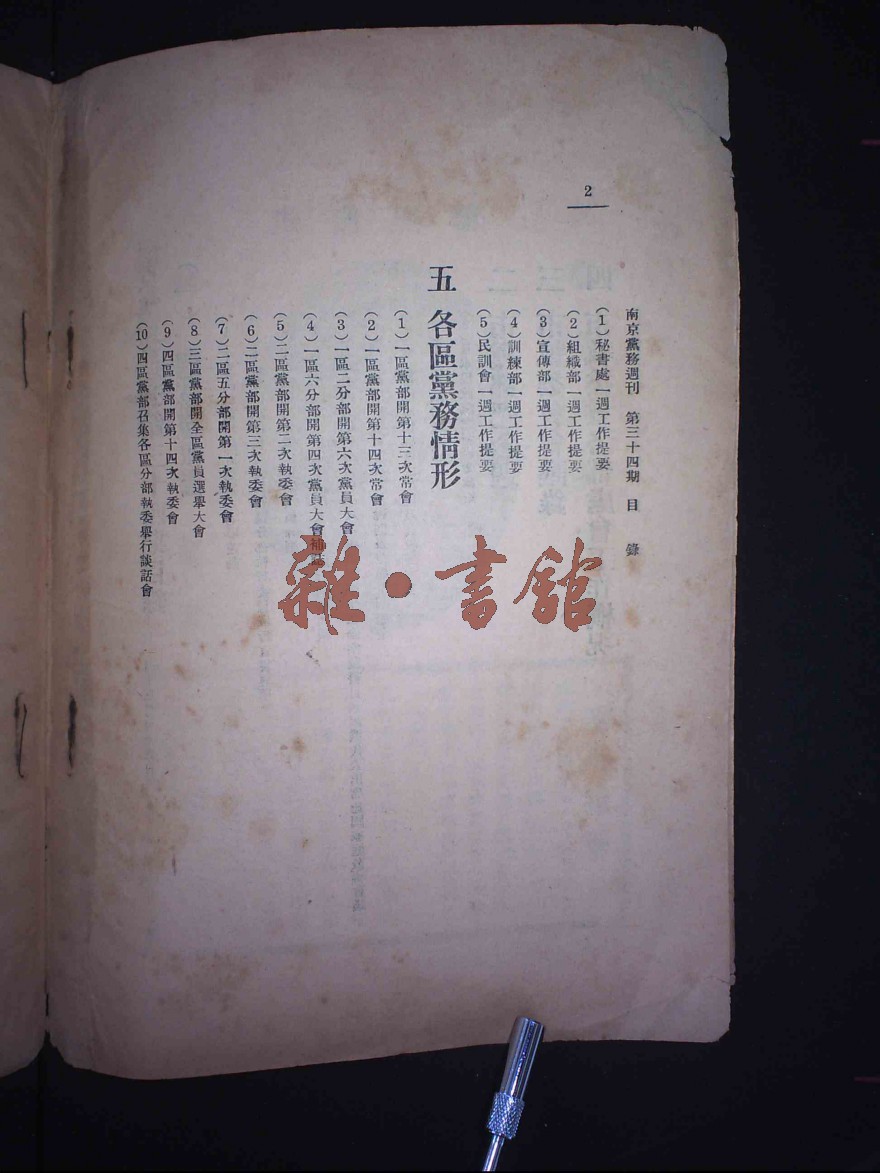 2
南京黨務週刊　第三十四期　目　錄
(1)秘書處一週工作提要
(2)組織部一週工作提要
(3)宣傳部一週工作提要
(4)訓練部一週工作提要
(5)民訓會一週工作提要
五　各區黨務情形
(1)一區黨部開第十三次常會
(2)一區黨部開第十四次常會
(3)一區二分部開第六次黨員大會
(4)一區六分部開第四次黨員大會補誌
(5)二區黨部開第二次執委會
(6)二區黨部開第三次執委會
(7)二區五分部開第一次執委會
(8)三區黨部開全區黨員選舉大會
(9)四區黨部開第十四次執委會
(10)四區黨部召集各區分部執委舉行談話會
雜·書館